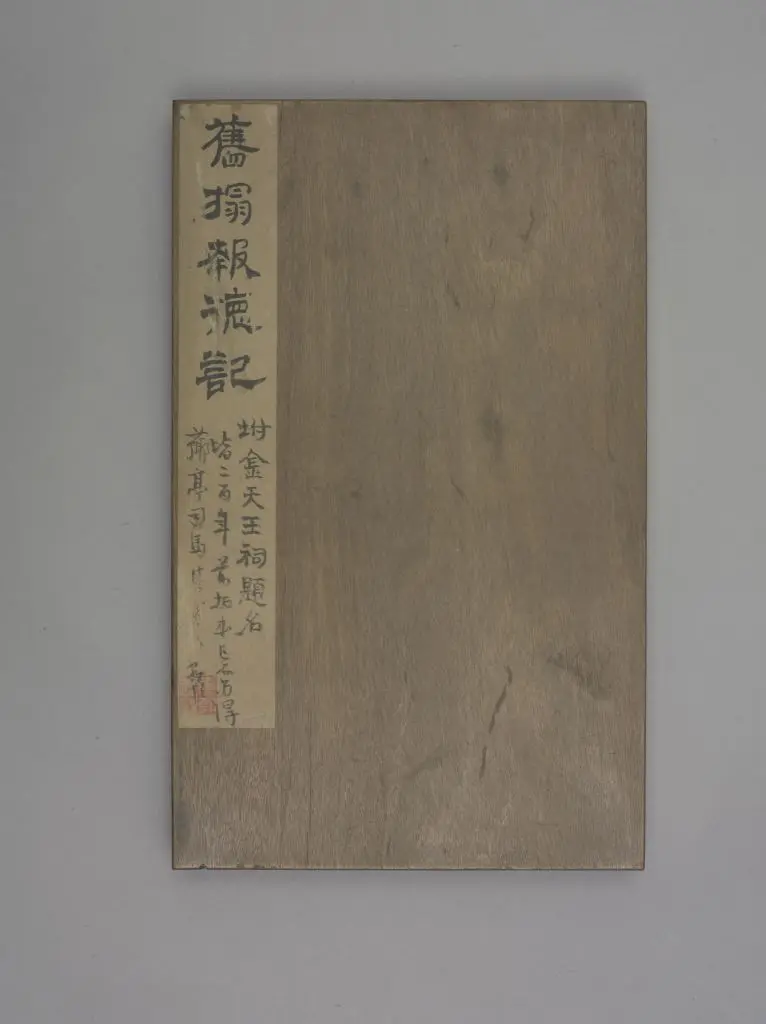 舊搨報德記
坿金天王祠題名
皆二百年前拓本已不易得
亭司馬